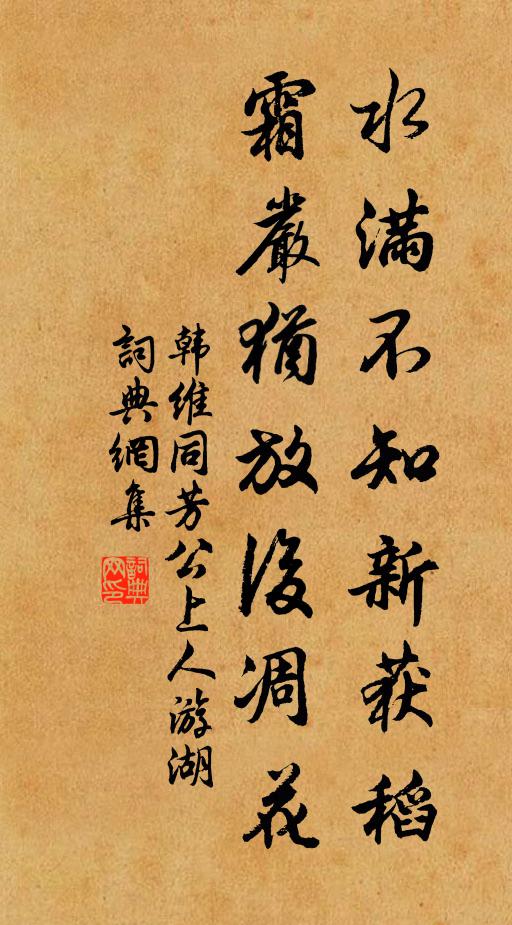 水滿不知新获稻
霜嚴猶放後凋花
韩维同芳公上人游湖
詞典網集
詞典网印